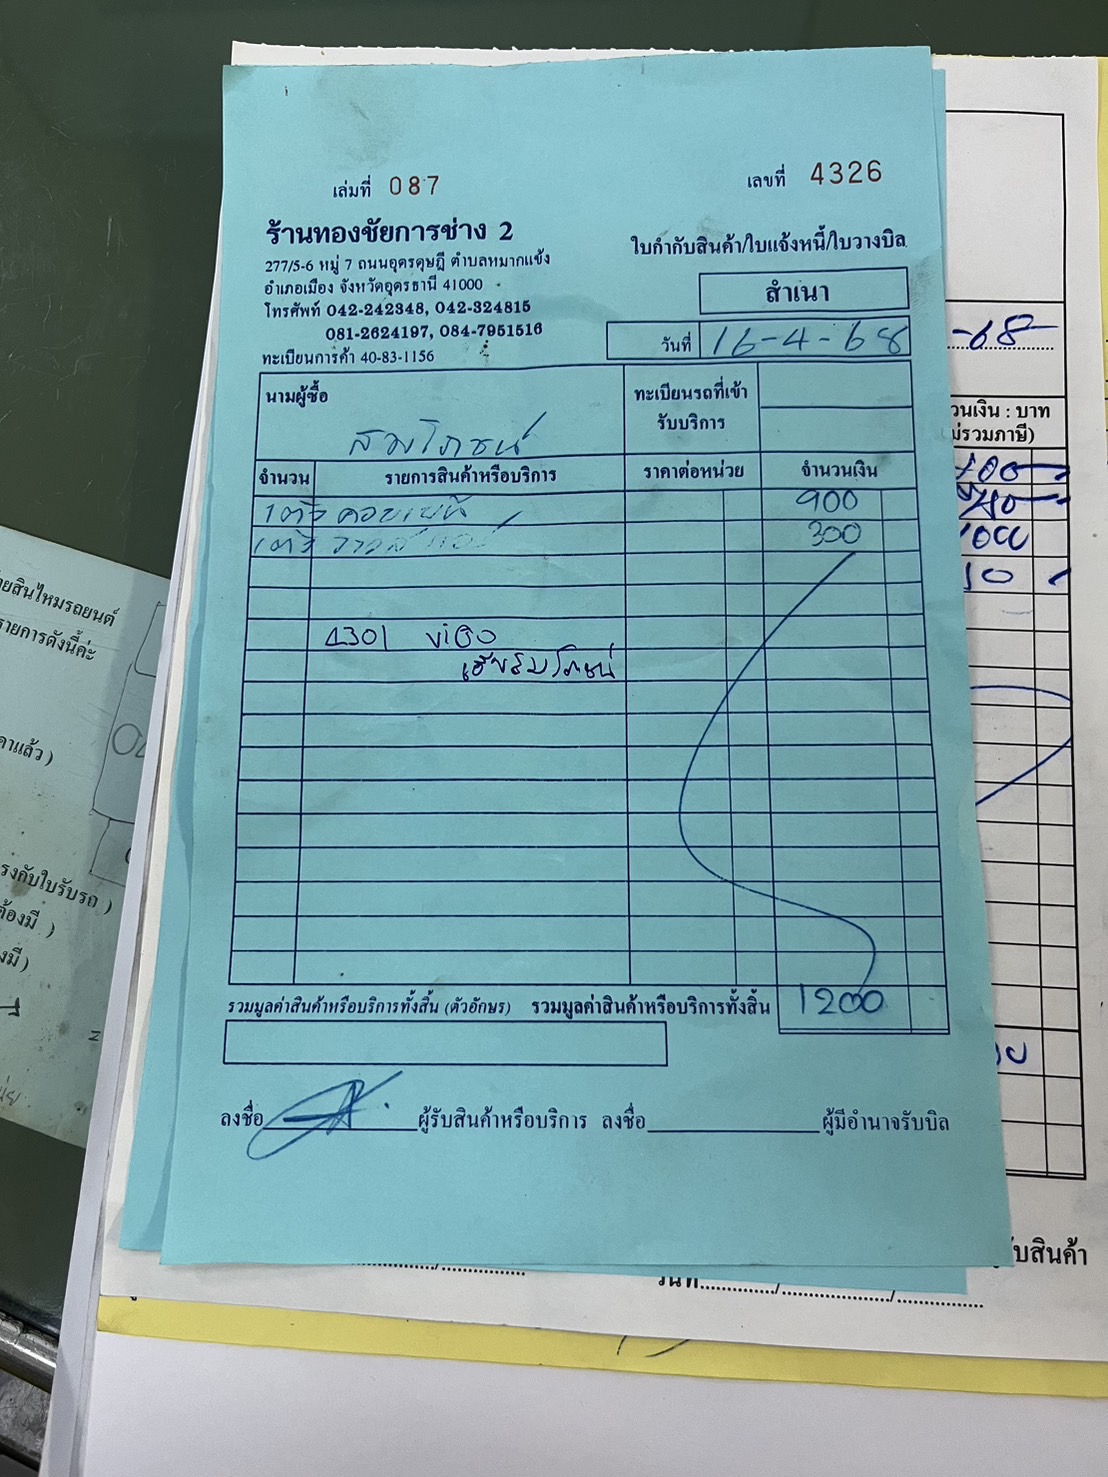 เล่มที่ 087
เลขที่ 4326
ร้านทองชัยการช่าง 2
277/5-6 หมู่ 7 ถนนอุดรดุษฎี ตำบลหมากแข้ง
อำเภอเมือง จังหวัดอุดรธานี 41000
โทรศัพท์ 042-242348, 042-324815
081-2624197, 084-7951516
ทะเบียนการค้า 40-83-1156
ใบกำกับสินค้า/ใบแจ้งหนี้/ใบวางบิล
สำเนา
วันที่ 16-4-68
นามผู้ซื้อ
สมโภชน์
ทะเบียนรถที่เข้า
รับบริการ
จำนวน รายการสินค้าหรือบริการ ราคาต่อหน่วย จำนวนเงิน
1ตัว คอยเย็น 900
1ตัว วาล์วแอร์ 300
1301 ViGo
เฮียสมโภชน์
รวมมูลค่าสินค้าหรือบริการทั้งสิ้น (ตัวอักษร) รวมมูลค่าสินค้าหรือบริการทั้งสิ้น 1200
ลงชื่อ ผู้รับสินค้าหรือบริการ ลงชื่อ ผู้มีอำนาจรับบิล
-68-
วนเงิน : บาท
ม่รวมภาษี)
รับสินค้า
วันที่
ยสินไหมรถยนต์
รายการดังนี้ค่ะ
คาแล้ว )
รงกับใบรับรถ )
ต้องมี )
งมี )